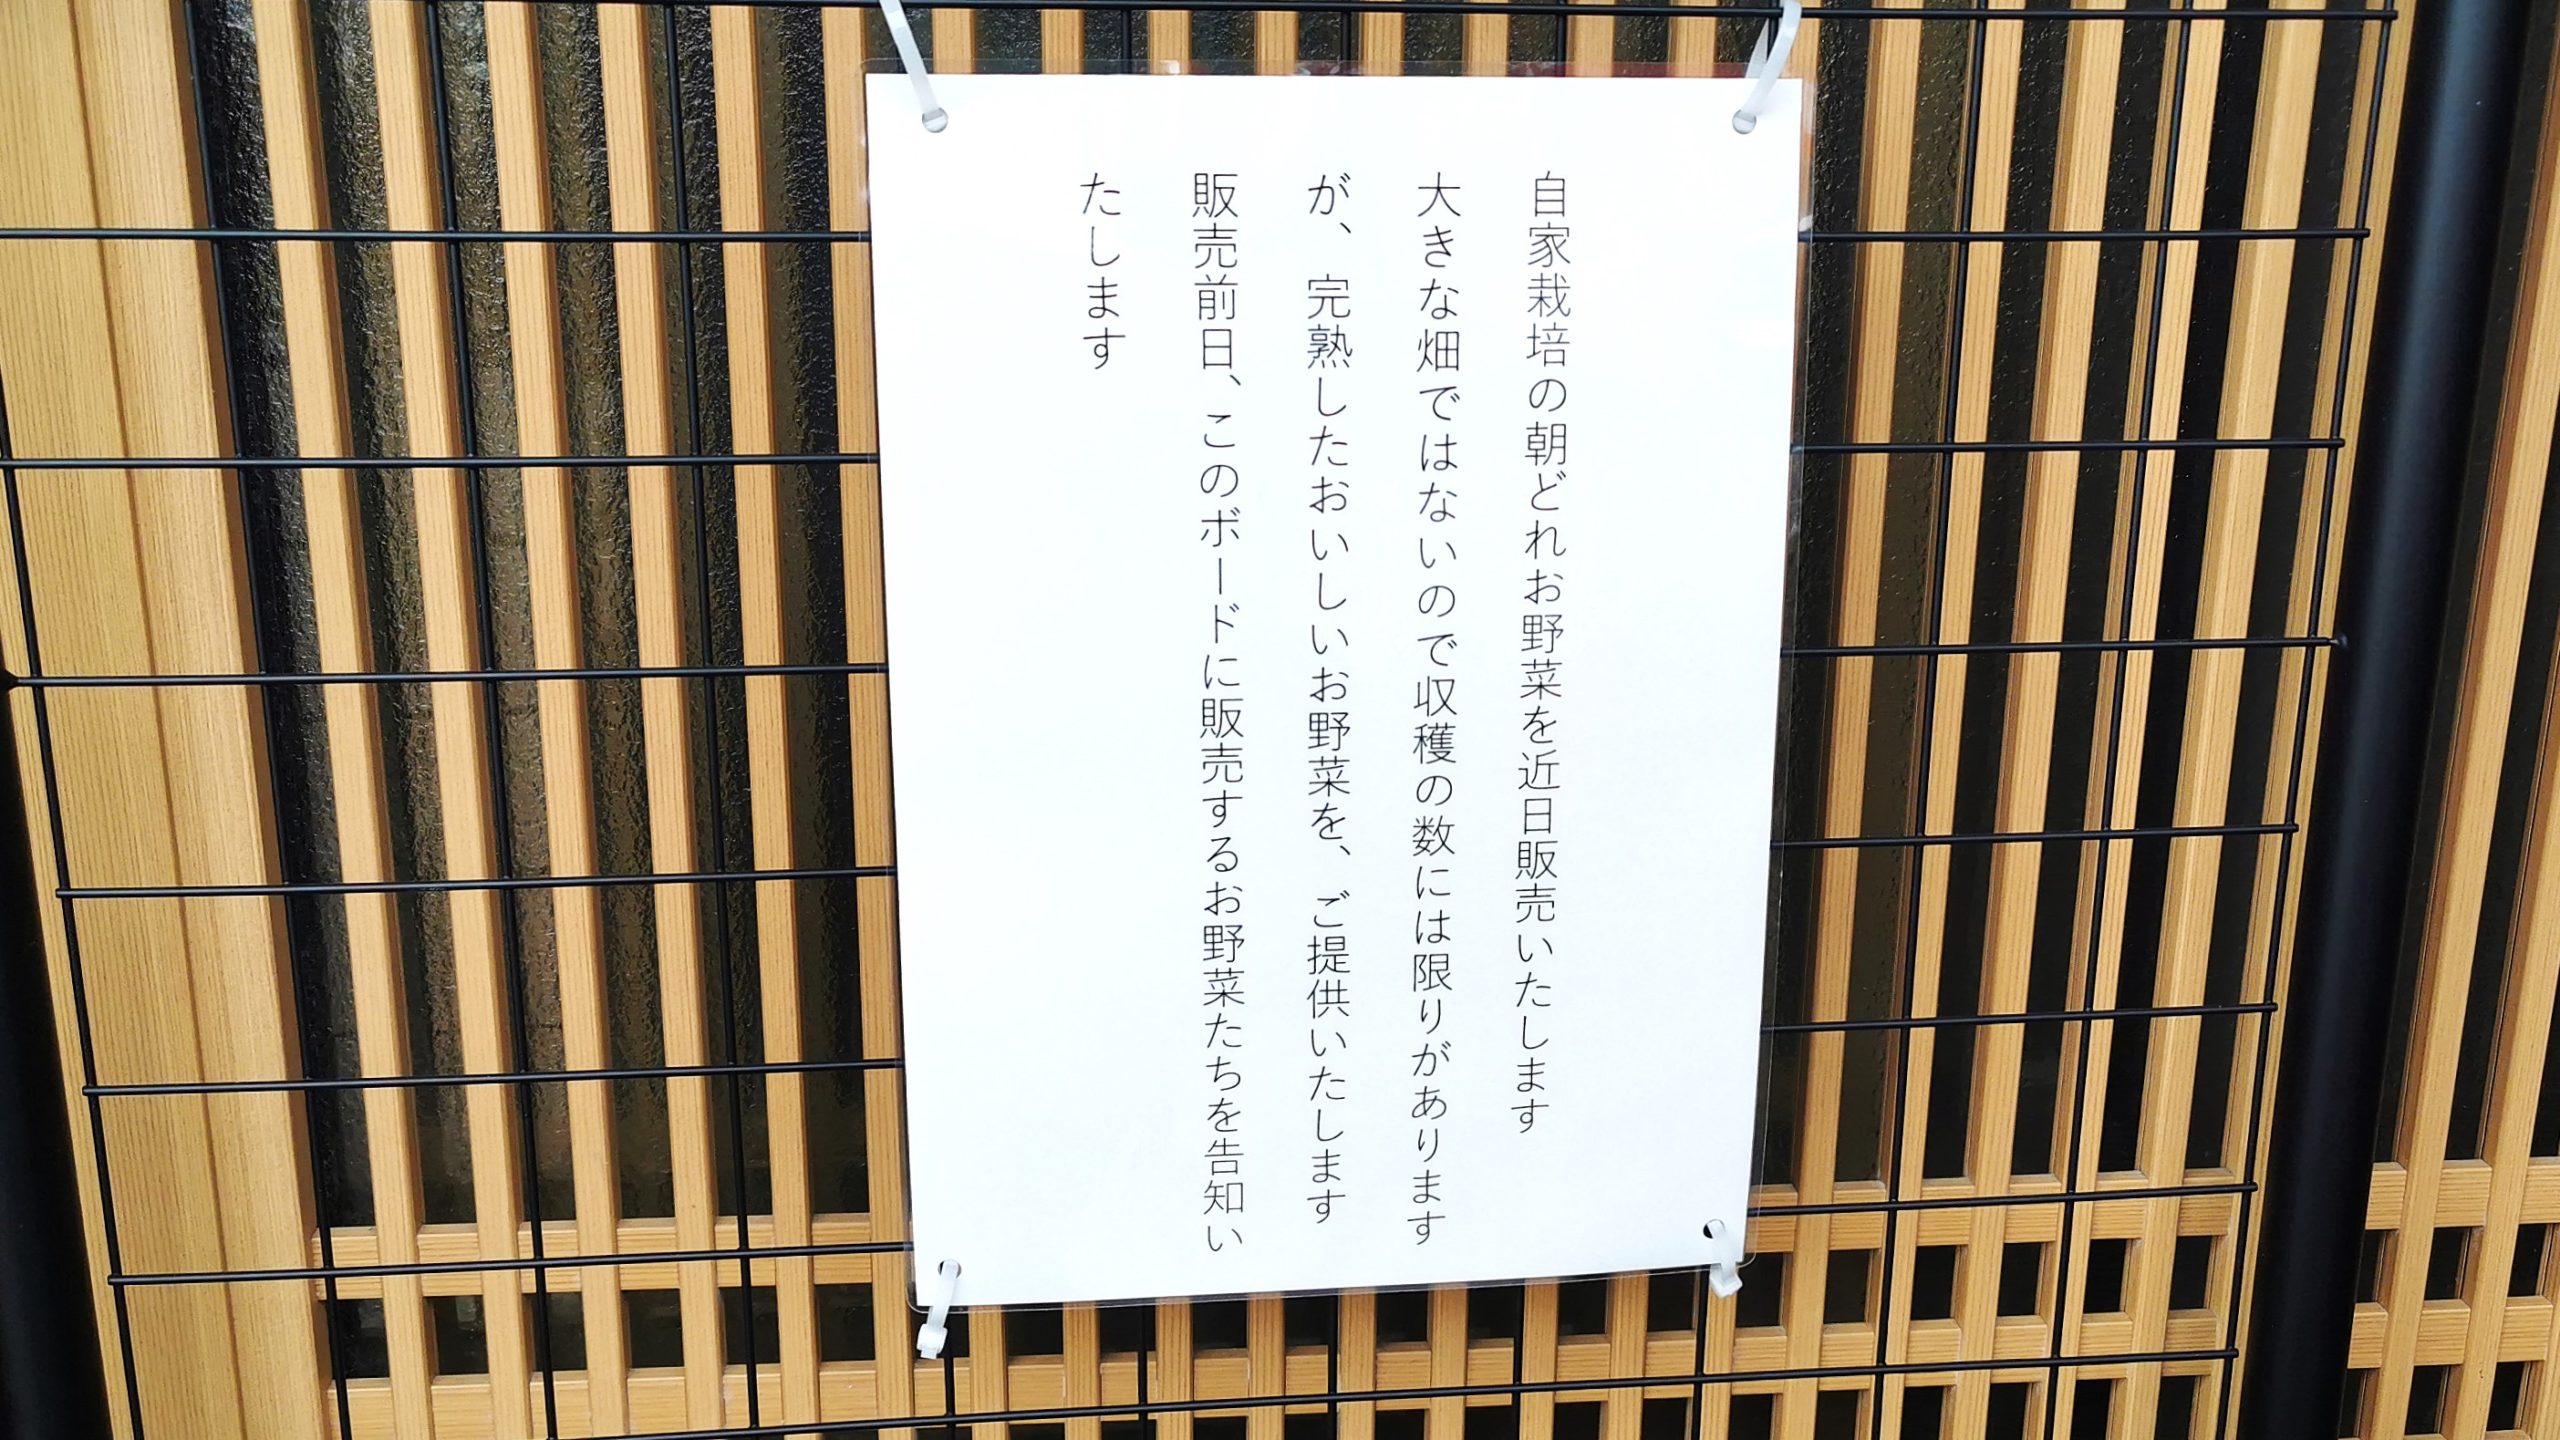 自家栽培の朝どれお野菜を近日販売いたします
大きな畑ではないので収穫の数には限りがあります
が、完熟したおいしいお野菜を、ご提供いたします
販売前日、このボードに販売するお野菜たちを告知い
たします